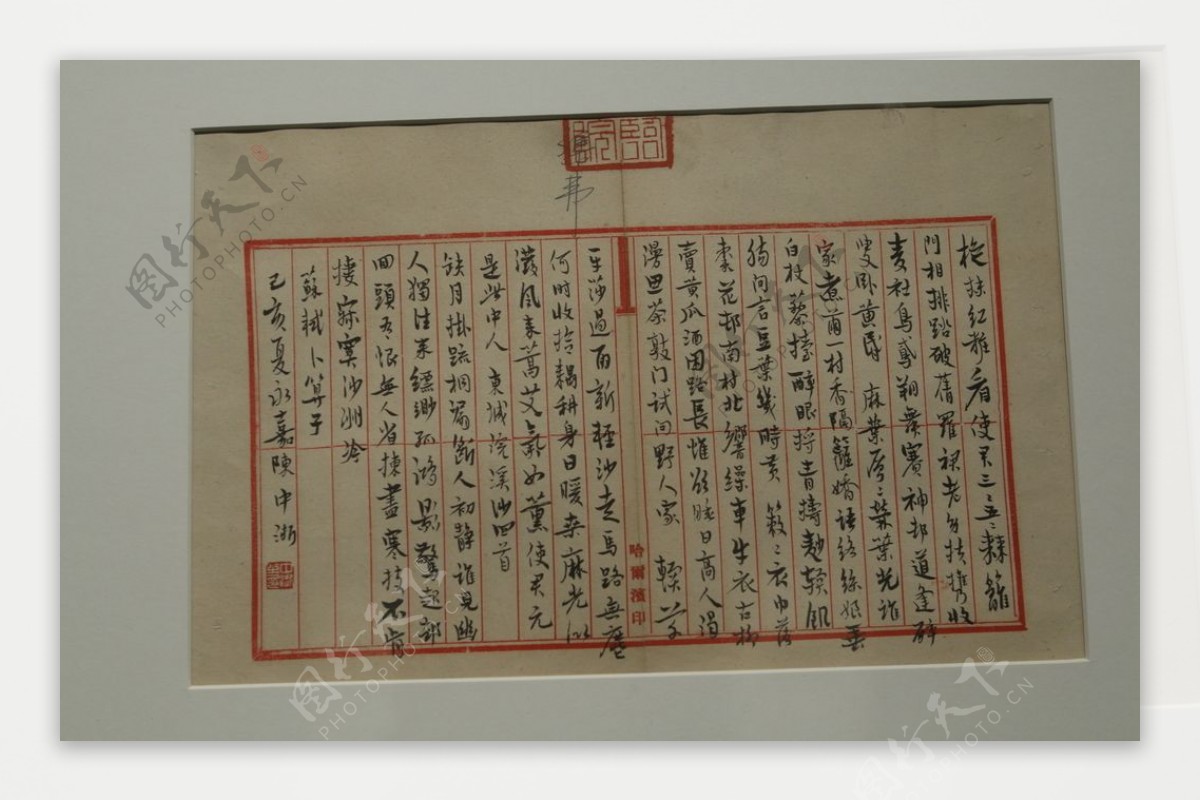 旋抹紅粧看使君三〻五〻棘籬
門相排踏破蒨羅裙老幼扶攜收
麥社鳥鳶翔舞賽神邨道逢醉
叟臥黃昏 麻葉層〻檾葉光誰
家煮繭一村香隔籬嬌語絡絲娘垂
白杖藜擡醉眼捋青擣麨軟飢
腸問言豆葉幾時黃 簌〻衣巾落
棗花邨南村北響繰車牛衣古柳
賣黃瓜酒困路長惟欲睡日高人渴
漫思茶敲門試問野人家 軟草
哈爾濱印
平莎過雨新輕沙走馬路無塵
何時收拾耦耕身日暖桑麻光似
潑風來蒿艾氣如薰使君元
是此中人 東坡浣溪沙四首
缺月掛疏桐漏斷人初靜誰見幽
人獨往來縹緲孤鴻影驚起卻
回頭有恨無人省揀盡寒枝不肯
棲寂寞沙洲冷
蘇軾卜算子
己亥夏永嘉陳中浙
图行天下
PHOTOPHOTO.CN